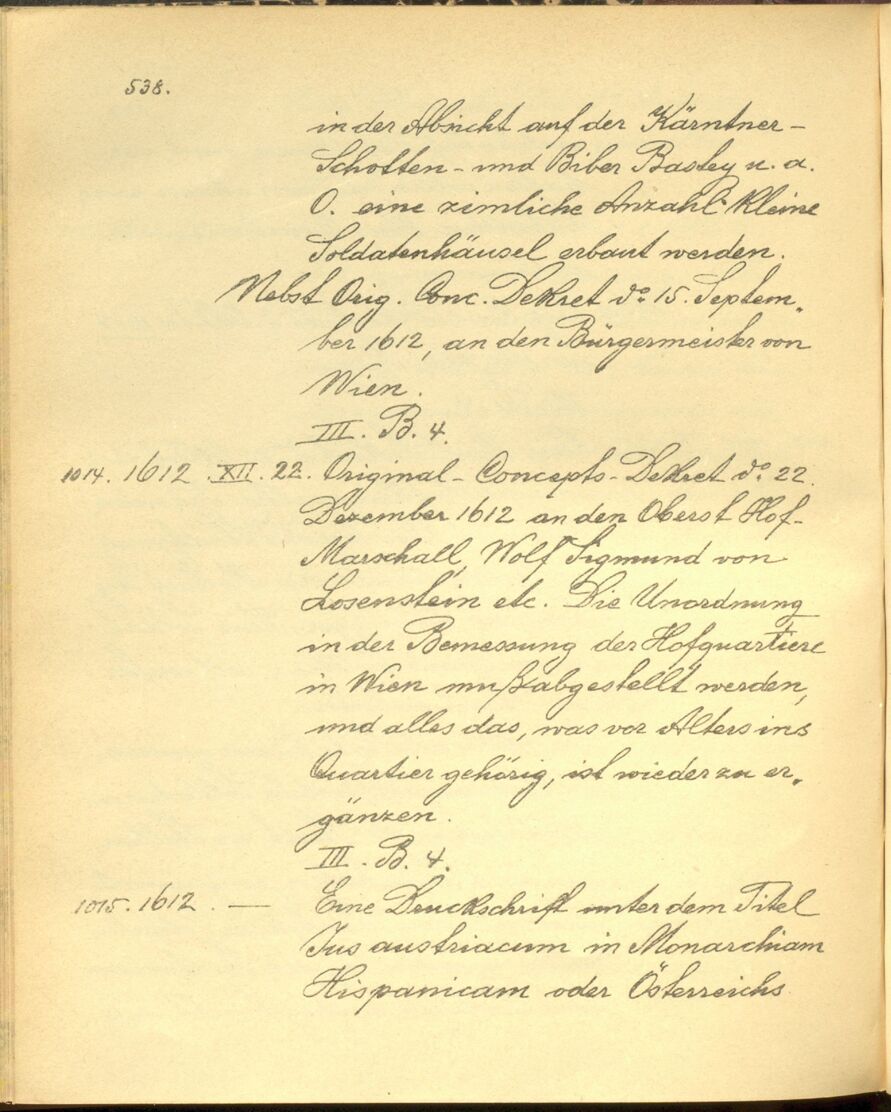 538.
in der Absicht auf der Kärntner-
Schotten- und Biber Bastey u. a.
O. eine zimliche Anzahl kleine
Soldatenhäusel erbaut werden.
Nebst Orig. Conc. Dekret do. 15. Septem-
ber 1612, an den Bürgermeister von
Wien.
III. B. 4.
1014. 1612. XII. 22. Original-Concepts-Dekret do. 22.
Dezember 1612 an den Oberst Hof-
Marschall, Wolf Sigmund von
Losenstein etc. Die Unordnung
in der Bemessung der Hofquartiere
in Wien muß abgestellt werden,
und alles das, was vor Alters ins
Quartier gehörig, ist wieder zu er-
gänzen.
III. B. 4.
1015. 1612. — Eine Druckschrift unter dem Titel
Jus austriacum in Monarchiam
Hispanicam oder Österreichs